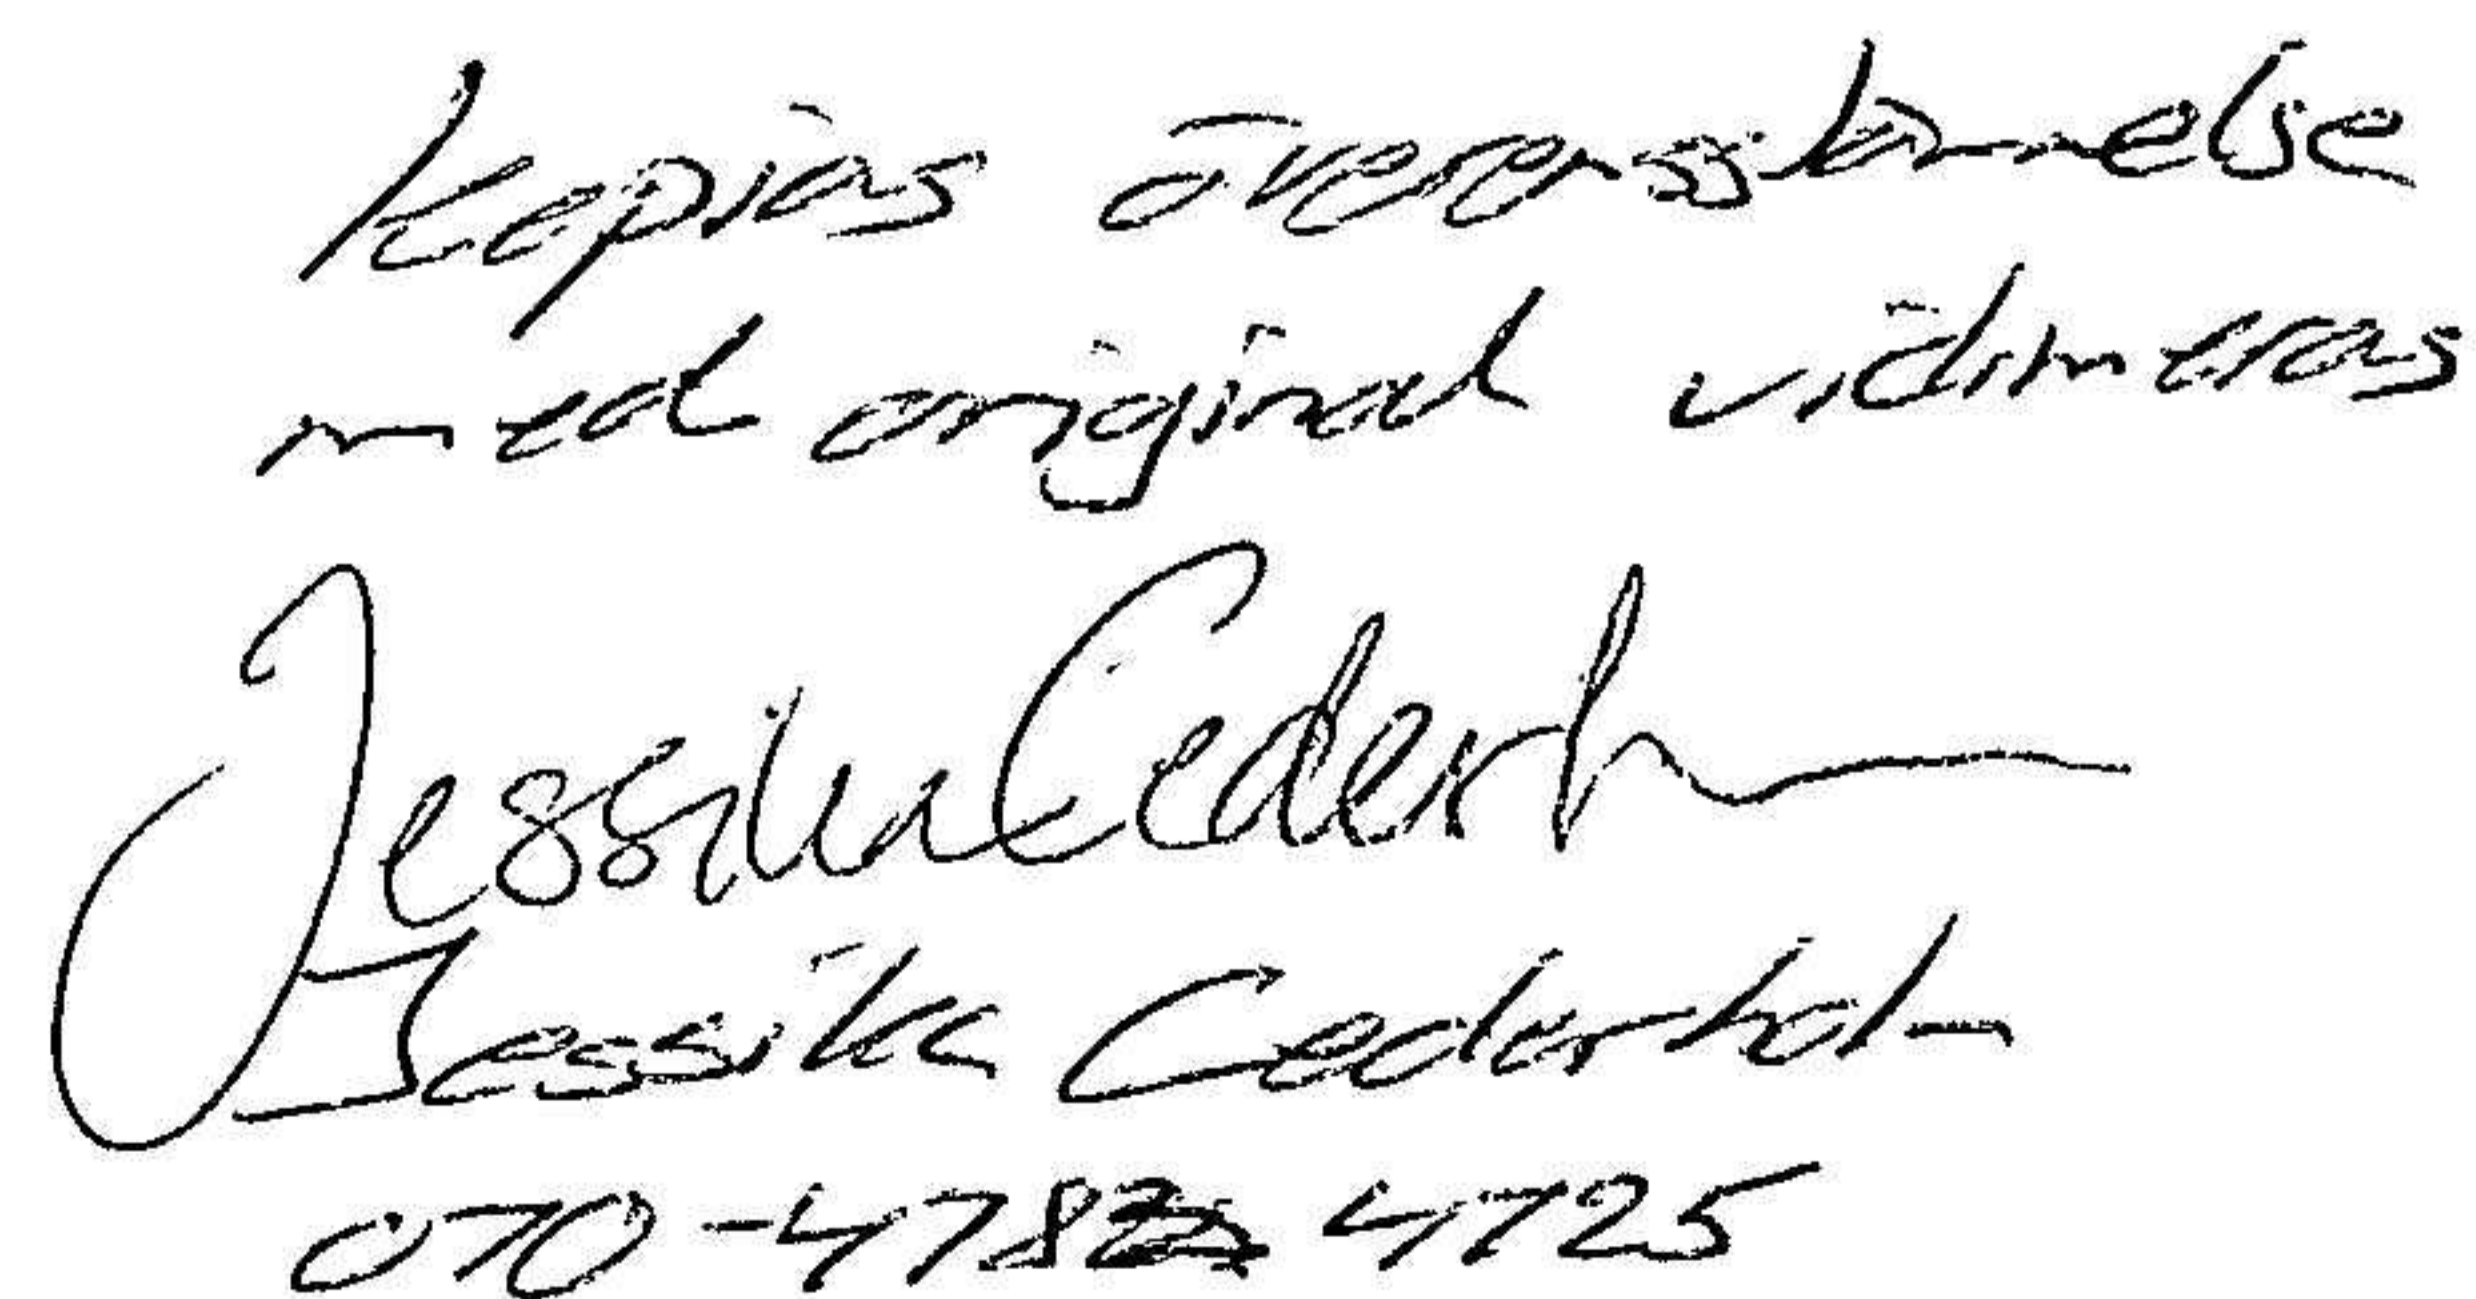 Kopians överensstämmelse
med original vidimeras
Jessika Cederh
Jessika Cederholm
070-478 4725